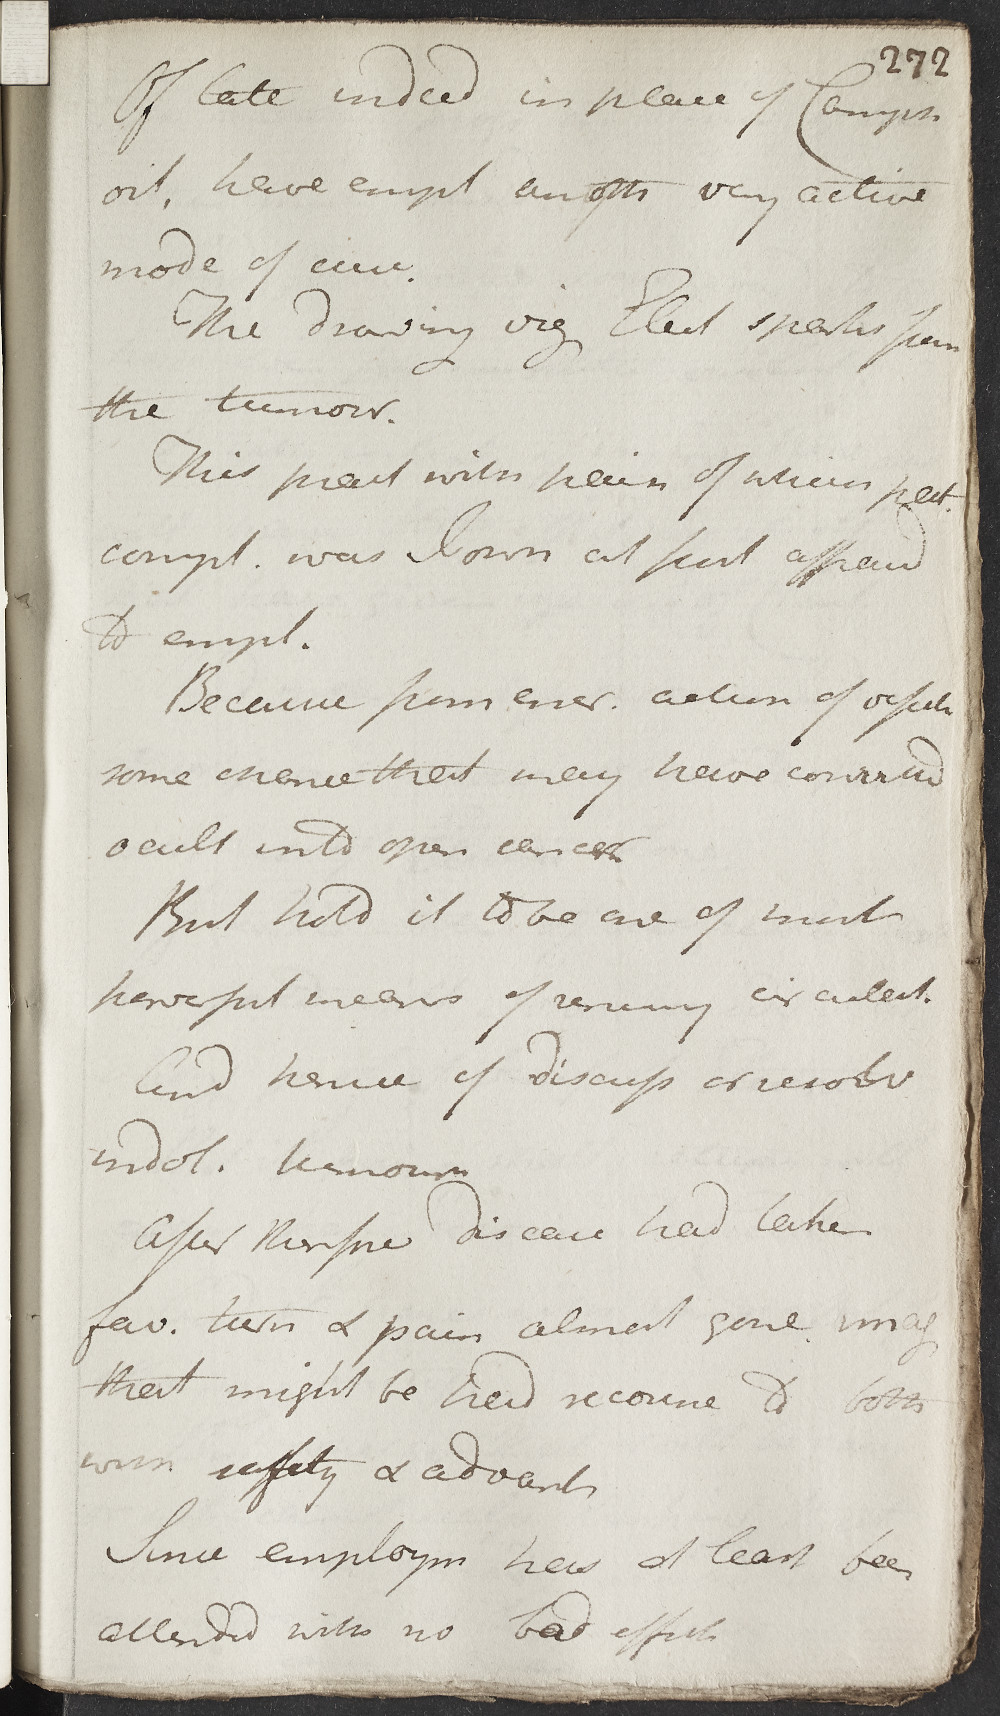 272
Of late indeed in place of Camph
oil, have empl anoth very active
mode of cure.
The drawing vig Elect sparks from
the tumour.
This pract with pain of which pat.
compl. was I own at first affraid
to empl.
Because from encr. action of vessels
some chance that may have converted
occult into open cancer
But hold it to be one of most
powerful means of renewing circulat.
And hence of discuss or resolv
indol. tumours
After therefore disease had taken
fav. turn & pain almost gone imag
that might be had recourse to both
with safety & advant
Since employm has at least been
attended with no bad effects